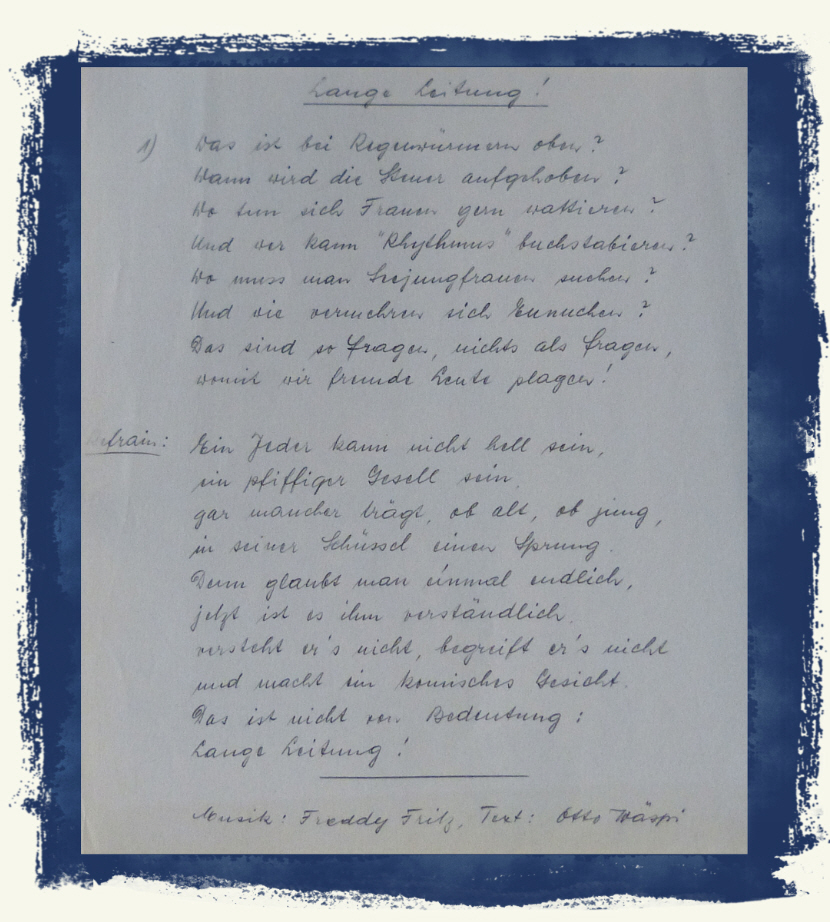 Lange Leitung!
1) Was ist bei Regenwürmern oben?
Wann wird die Steuer aufgehoben?
Wo tun sich Frauen gern wattieren?
Und wer kann "Rhythmus" buchstabieren?
Wo muss man Seejungfrauen suchen?
Und wie vermehren sich Eunuchen?
Das sind so Fragen, nichts als Fragen,
womit wir fremde Leute plagen!
Refrain: Ein Jeder kann nicht hell sein,
ein pfiffiger Gesell sein.
gar mancher trägt, ob alt, ob jung,
in seiner Schüssel einen Sprung.
Denn glaubt man einmal endlich,
jetzt ist es ihm verständlich.
versteht er's nicht, begreift er's nicht
und macht ein komisches Gesicht.
Das ist nicht von Bedeutung:
Lange Leitung!
Musik: Freddy Fritz, Text: Otto Wäspi